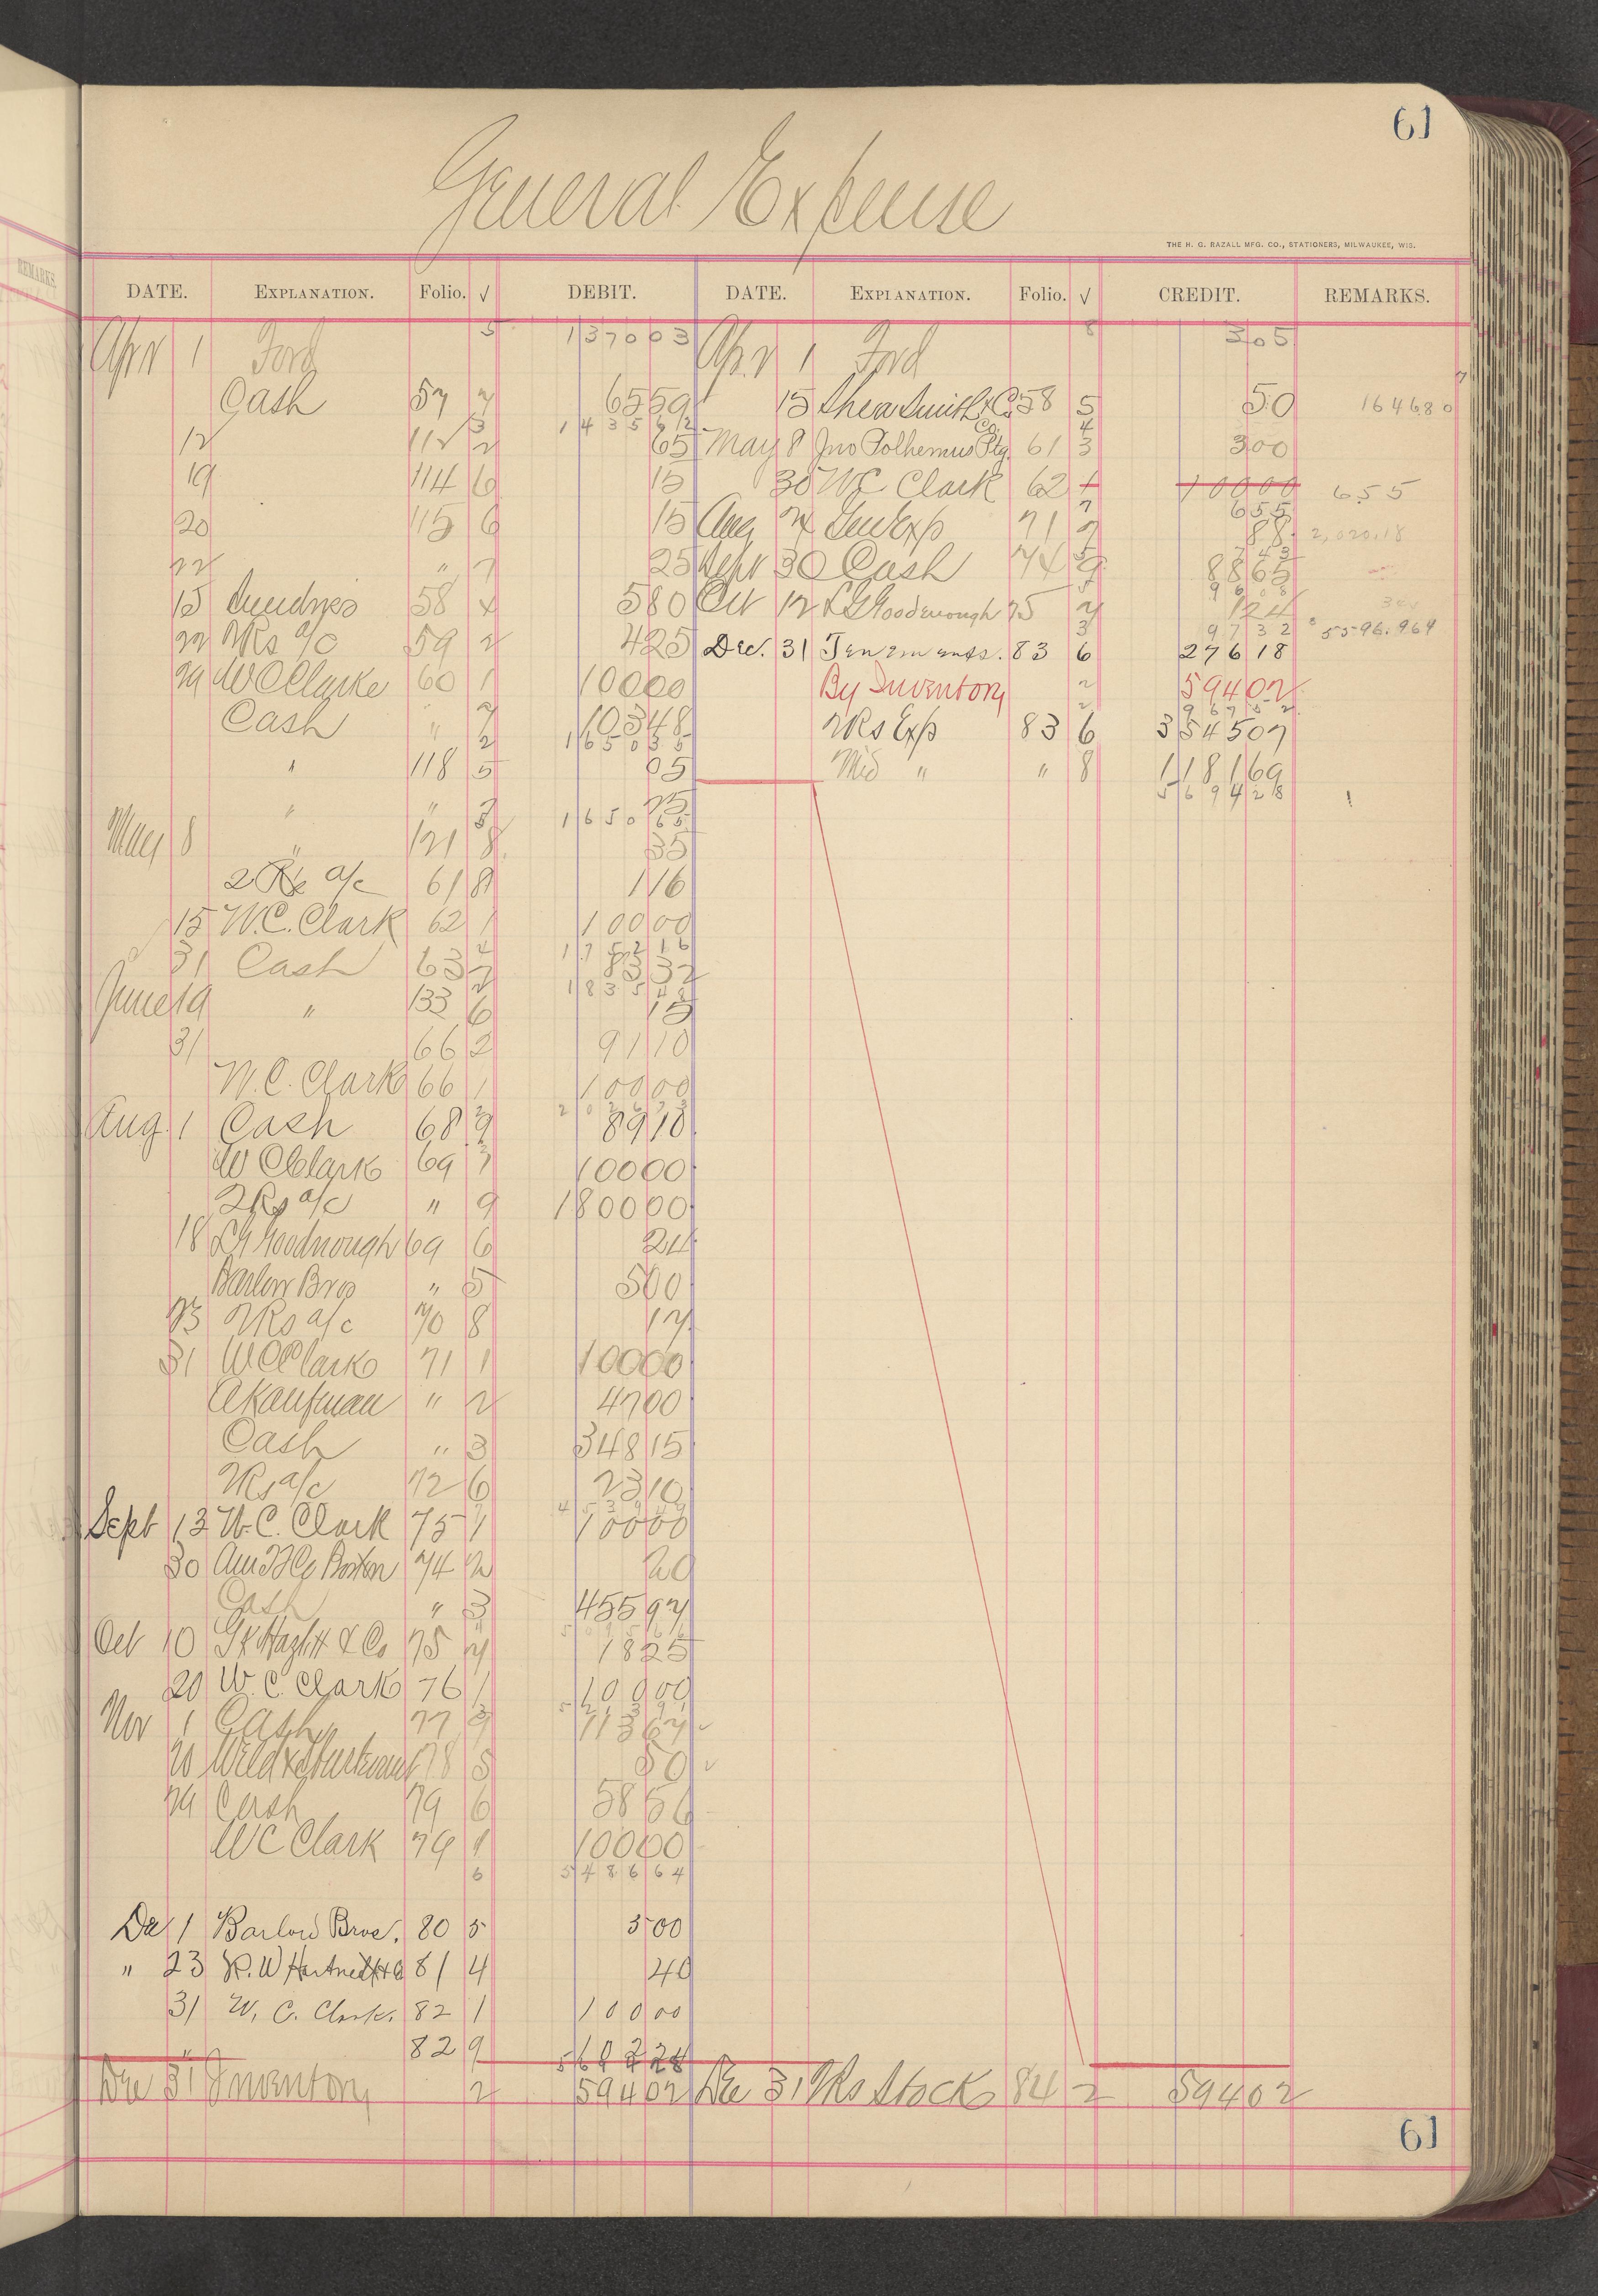 61
General Expense
THE H. G. RAZALL MFG. CO., STATIONERS, MILWAUKEE, WIS.
DATE. EXPLANATION. Folio. √ DEBIT. DATE. EXPLANATION. Folio. √ CREDIT. REMARKS.
Apr 1 Ford 5 137003 Apr 1 Ford 8 305
Cash 57 7 6559 15 Shea Smith & Co. 58 5 50 164680
3 143562 Co. 4
12 112 2 65 May 8 Jno Polhemus Ptg. 61 3 300
19 114 6 15 30 WC Clark 62 1 10000 655
7 655
20 115 6 15 Aug 24 Gen Exp 71 7 88 2,020.18
743
22 " 7 25 Sept 30 Cash 74 9 8865
9608
15 Sundries 58 4 580 Oct 12 LG Goodenough 75 7 124
3 9732 5596.969
22 2Rs a/c 59 2 425 Dec. 31 Tenements. 83 6 27618
29 WC Clarke 60 1 10000 By Inventory 2 59402
2 96752
Cash " 7 10348 2Rs Exp 83 6 354507
2 165035
" 118 5 05 Mid " " 8 118169
569428
" " 3 25
165065
May 8 " 121 8 35
2Rs a/c 61 8 116
15 W.C. Clark 62 1 10000
4 175216
31 Cash 63 7 8332
2 183548
June 19 " 133 6 15
31 66 2 9110
W.C. Clark 66 1 10000
Aug. 1 Cash 68 9 8910
W C Clark 69 1 10000
2Rs a/c " 9 180000
18 LG Goodnough 69 6 24
Barlow Bros " 5 500
23 2Rs a/c 70 8 17
31 WC Clark 71 1 10000
A Kaufman " 2 4700
Cash " 3 34815
2Rs a/c 72 6 2310
Sept 13 W.C. Clark 75 1 10000
30 74 2 20
Cash " 3 45597
Oct 10 & Co 75 7 1825
20 W.C. Clark 76 1 10000
Nov 1 Cash 77 9 11367
20 78 5 50
29 Cash 79 6 5856
WC Clark 79 1 10000
6 548664
Dec 1 Barlow Bros. 80 5 500
" 23 81 4 40
31 W. C. Clark. 82 1 10000
" 82 9
Dec 31 Inventory 2 59402 Dec 31 2Rs Stock 84 2 59402
61